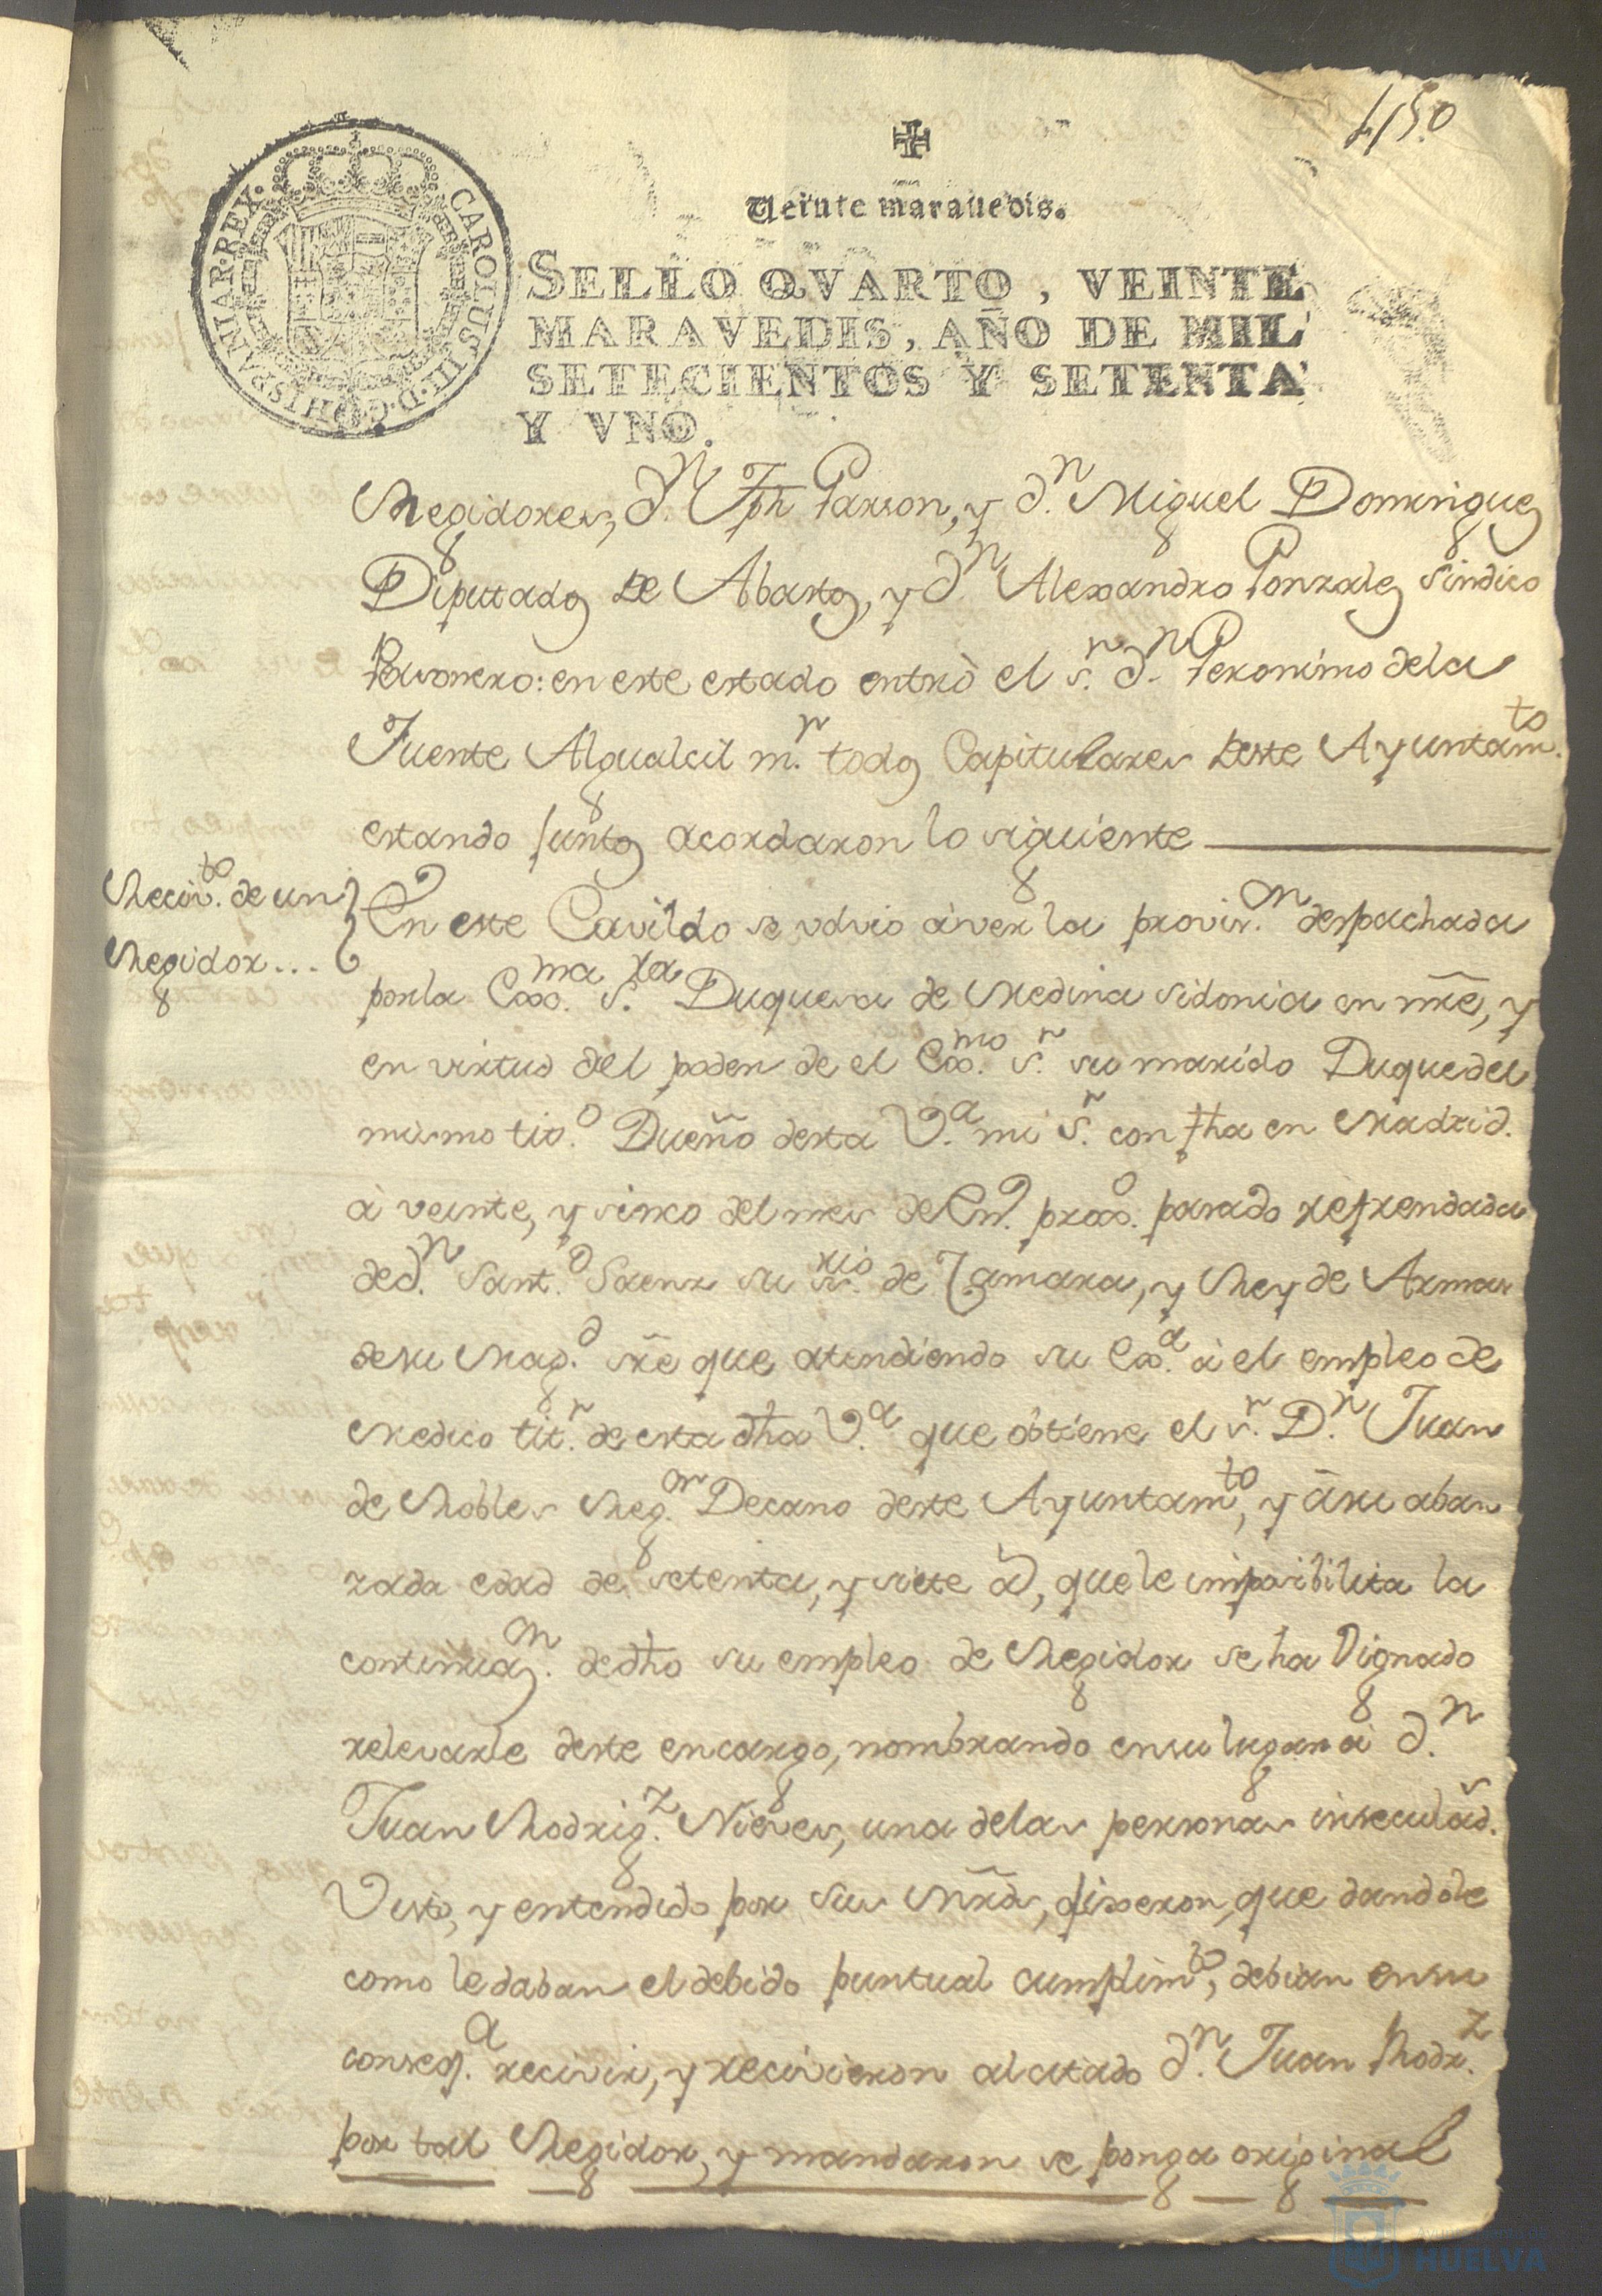 450
Veinte maravedis.
CAROLUS III D.G. HISPANIAR. REX.
SELLO QVARTO, VEINTE
MARAVEDIS, AÑO DE MIL
SETECIENTOS Y SETENTA
Y VNO.
Regidores, Dn. Jph Garzon, y Dn. Miguel Dominguez
Diputados de Abastos, y Dn. Alexandro Gonzalez sindico
Personero: en este estado entrò el sr. Dn. Geronimo dela
Fuente Alguacil mr. todos Capitulares deste Ayuntamto.
estando juntos acordaron lo siguiente
Recivto. de un
Regidor...
En este Cavildo se volvio à ver la provisn. despachada
por la Exma. sra. Duquesa de Medina Sidonia en nre, y
en virtud del poder de el Exmo. sr. su marido Duque del
mismo tito. Dueño desta Va. mi sr. con fha en Madrid.
à veinte, y sinco del mes de Eno. proxo. pasado refrendada
de Dn. Santo. Saenz su srio. de Camara, y Rey de Armas
de su Magd. sre que atendiendo su Exa. à el empleo de
Medico titr. de esta dha Va. que obtiene el sr. Dn. Juan
de Robles Regor. Decano deste Ayuntamto, y à su aban
zada edad de setenta, y siete as, que le imposibilita la
continuazn. de dho su empleo de Regidor se ha Dignado
relevarle deste encargo, nombrando en su lugar à Dn.
Juan Rodrigz. Nieves, una delas personas inseculads.
Visto, y entendido por sus Mrds, dixeron, que dandole
como le daban el debido puntual cumplimto, debian en su
conseqa. recivir, y recivieron al citado Dn. Juan Rodrz.
por tal Regidor, y mandaron se ponga original
HUELVA